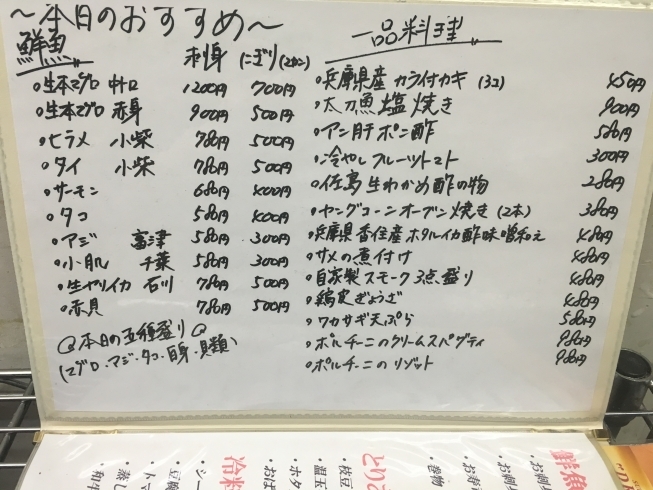 ～本日のおすすめ～
鮮魚 刺身 にぎり(2かん)
・生本マグロ 中トロ 1200円 700円
・生本マグロ 赤身 900円 500円
・ヒラメ 小柴 780円 500円
・タイ 小柴 780円 500円
・サーモン 680円 400円
・タコ 580円 400円
・アジ 富津 580円 300円
・小肌 千葉 580円 300円
・生ヤリイカ 石川 780円 500円
・赤貝 780円 500円
◎本日の五種盛り◎
(マグロ・アジ・タコ・白身・貝類)
一品料理
・兵庫県産 カラ付カキ(3コ) 450円
・太刀魚塩焼き 900円
・アン肝ポン酢 580円
・冷やしフルーツトマト 300円
・佐島生わかめ酢の物 280円
・ヤングコーンオーブン焼き(2本) 380円
・兵庫県香住産ホタルイカ酢味噌和え 480円
・サメの煮付け 480円
・自家製スモーク3点盛り 480円
・鶏皮ぎょうざ 480円
・ワカサギ天ぷら 580円
・ポルチーニのクリームスパゲティ 980円
・ポルチーニのリゾット 980円
鮮魚
・お刺身
・お刺
・お寿
・巻物
とりあ
・枝豆
・温玉
・ホタ
・おは
冷料
・シー
・トマ
・豆腐
・蒸し
・和牛